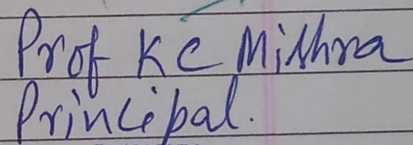 Prof K C Mishra
Principal.